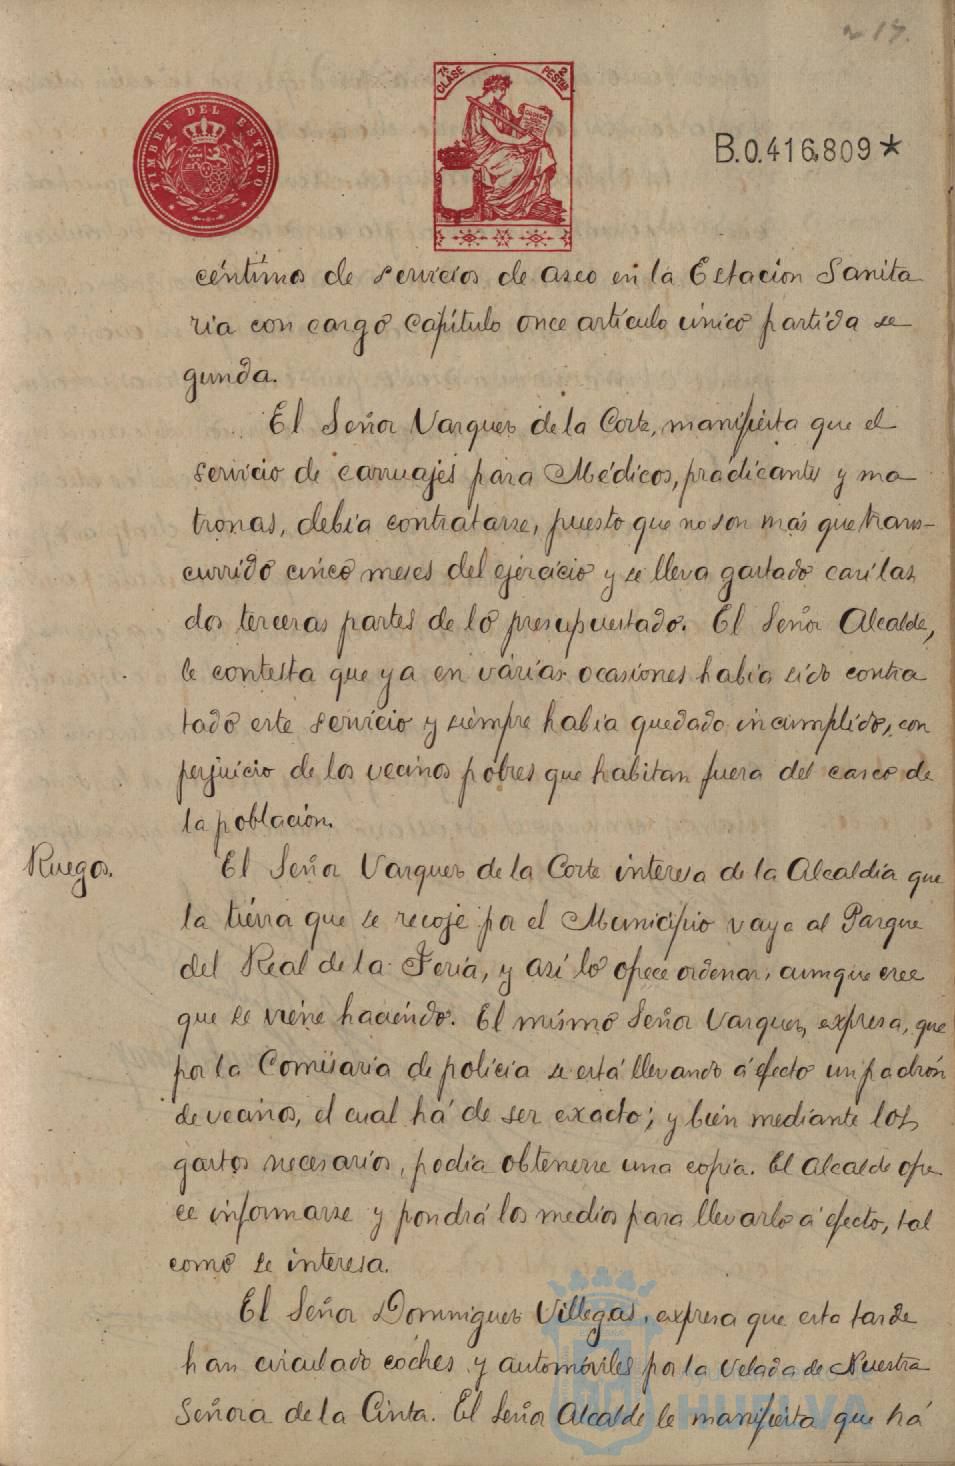 217.
TIMBRE DEL ESTADO
7ª CLASE
2 PESTAS
B.0.416,809*
céntimos de servicios de aseo en la Estacion Sanita
ria con cargo Capítulo once artículo único partida se
gunda.
El Señor Vazquez de la Corte, manifiesta que el
servicio de carruajes para Médicos, practicantes y ma
tronas, debia contratarse, puesto que no son más que trans-
currido cinco meses del ejercicio y se lleva gastado casi las
dos terceras partes de lo presupuestado. El Señor Alcalde,
le contesta que ya en várias ocasiones habia sido contra
tado este servicio y siempre habia quedado incumplido, con
perjuicio de los vecinos pobres que habitan fuera del casco de
la población.
Ruegos. El Señor Vazquez de la Corte interesa de la Alcaldía que
la tierra que se recoje por el Municipio vaya al Parque
del Real de la Feria, y así lo ofrece ordenar, aunque cree
que se viene haciendo. El mismo Señor Vazquez, expresa, que
por la Comisaría de policia se está llevando á efecto un padrón
de vecinos, el cual há de ser exacto; y bien mediante los
gastos necesarios, podia obtenerse una copia. El Alcalde ofre
ce informarse y pondrá los medios para llevarlo á efecto, tal
como se interesa.
El Señor Dominguez Villegas, expresa que esta tarde
han circulado coches y automóviles por la Velada de Nuestra
Señora de la Cinta. El Señor Alcalde le manifiesta que há
HUELVA